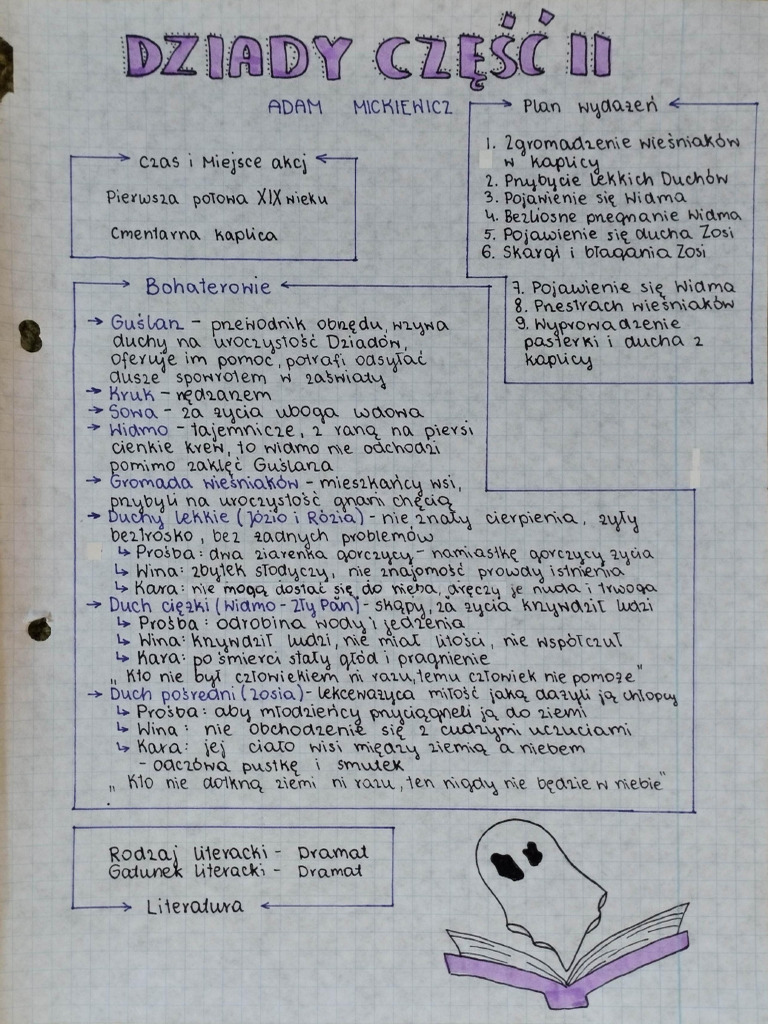 DZIADY CZĘŚĆ II
ADAM MICKIEWICZ
Czas i Miejsce akcj
Pierwsza połowa XIX wieku
Cmentarna kaplica
Plan wydażeń
1. Zgromadzenie wieśniaków
w kaplicy
2. Przybycie Lekkich Duchów
3. Pojawienie się Widma
4. Bezliosne przegnanie Widma
5. Pojawienie się ducha Zosi
6. Skargi i błagania Zosi
7. Pojawienie się Widma
8. Przestrach wieśniaków
9. Wyprowadzenie
pasterki i ducha z
kaplicy
Bohaterowie
→ Guślarz – przewodnik obrzędu, wzywa
duchy na uroczystość Dziadów,
oferuje im pomoc, potrafi odsyłać
dusze spowrotem w zaświaty
→ Kruk – nędzarzem
→ Sowa – za życia uboga wdowa
→ Widmo – tajemnicze, z raną na piersi
cienkie krew, to widmo nie odchodzi
pomimo zaklęć Guślarza
→ Gromada wieśniaków – mieszkańcy wsi,
przybyli na uroczystość gnani chęcią
→ Duchy lekkie (Józio i Rózia) – nie znały cierpienia, żyły
beztrosko, bez żadnych problemów
↳ Prośba: dwa ziarenka gorczycy – namiastkę gorczycy życia
↳ Wina: zbytek słodyczy, nie znajomość prawdy istnienia
↳ Kara: nie mogą dostać się do nieba, dręczy je nuda i trwoga
→ Duch ciężki (Widmo – Zły Pan) – skąpy, za życia krzywdził ludzi
↳ Prośba: odrobina wody i jedzenia
↳ Wina: krzywdził ludzi, nie miał litości, nie współczuł
↳ Kara: po śmierci stały głód i pragnienie
„Kto nie był człowiekiem ni razu, temu człowiek nie pomoże"
→ Duch pośredni (Zosia) – lekceważyca miłość jaką dażyli ją chłopcy
↳ Prośba: aby młodzieńcy przyciągneli ją do ziemi
↳ Wina: nie obchodzenie się z cudzymi uczuciami
↳ Kara: jej ciało wisi między ziemią a niebem
– odczówa pustkę i smutek
„Kto nie dotkną ziemi ni razu, ten nigdy nie będzie w niebie"
Rodzaj literacki – Dramat
Gatunek literacki – Dramat
Literatura